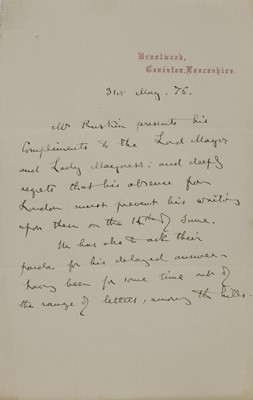 Brantwood,
Coniston, Lancashire.
31st May. 76.
Mr Ruskin presents his
Compliments to the Lord Mayor
and Lady Mayoress: and deeply
regrets that his absence from
London must prevent his waiting
upon them on the 14th of June.
He has also to ask their
pardon for his delayed answer-
having been for some time out of
the range of letters, among the hills.